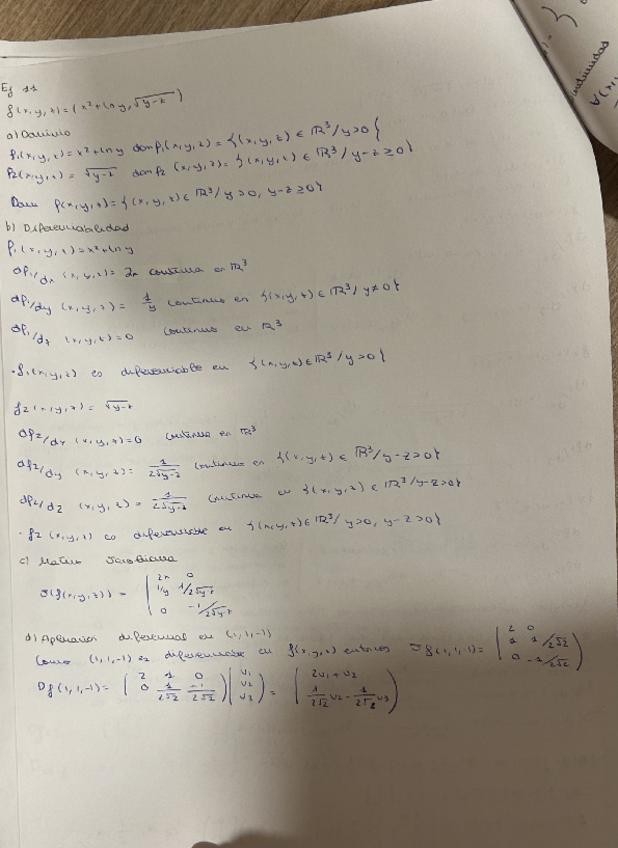 Ej 11
f(x,y,z)=(x²+ln y, √y-z)
a) Dominio
f₁(x,y,z)=x²+ln y dom f₁(x,y,z)={(x,y,z) ∈ ℝ³/y>0}
f₂(x,y,z)=√y-z dom f₂(x,y,z)={(x,y,z) ∈ ℝ³/y-z≥0}
Dom f(x,y,z)={(x,y,z) ∈ ℝ³/y>0, y-z≥0}
b) Diferenciabilidad
f₁(x,y,z)=x²+ln y
df₁/dx (x,y,z)=2x continua en ℝ³
df₁/dy (x,y,z)=1/y continua en {(x,y,z) ∈ ℝ³/y≠0}
df₁/dz (x,y,z)=0 continua en ℝ³
·f₁(x,y,z) es diferenciable en {(x,y,z) ∈ ℝ³/y>0}
f₂(x,y,z)=√y-z
df₂/dx (x,y,z)=0 continua en ℝ³
df₂/dy (x,y,z)=1/2√y-z continua en {(x,y,z) ∈ ℝ³/y-z>0}
df₂/dz (x,y,z)=-1/2√y-z continua en {(x,y,z) ∈ ℝ³/y-z>0}
·f₂(x,y,z) es diferenciable en {(x,y,z) ∈ ℝ³/y>0, y-z>0}
c) Matriz Jacobiana
J(f(x,y,z)) = (2x 0
1/y 1/2√y-z
0 -1/2√y-z)
d) Aplicación diferencial en (1,1,-1)
Como (1,1,-1) es diferenciable en f(x,y,z) entonces Jf(1,1,-1)= (2 0
1 1/2√2
0 -1/2√2)
Df(1,1,-1)= (2 1 0
0 1/2√2 -1/2√2) (v₁
v₂
v₃) = (2v₁+v₂
1/2√2 v₂ - 1/2√2 v₃)